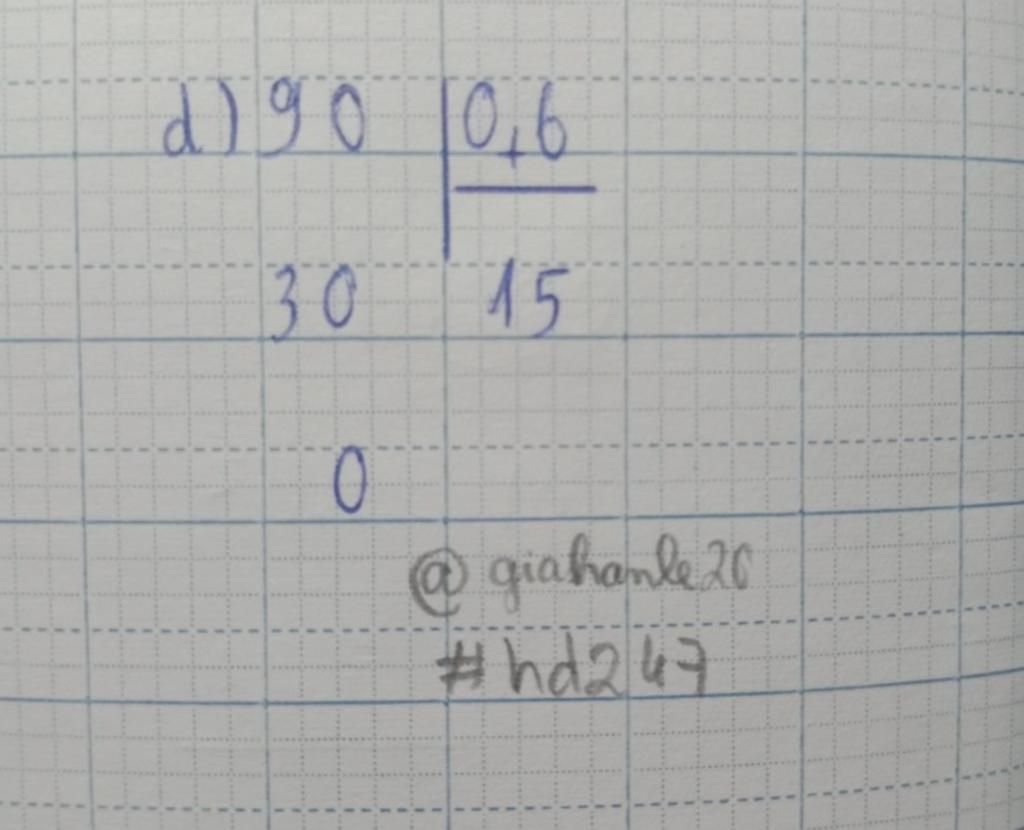 d) 90 | 0,6
30 15
0
@giahanle26
#hd247